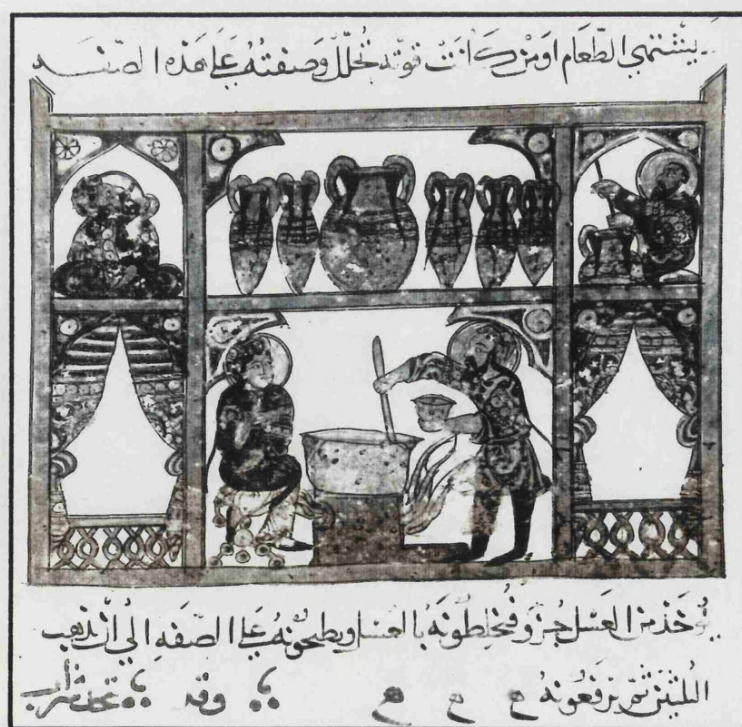 يشتهي الطعام اومن كانت قوته تحلل وصفته على هذه الصفه
يوخذ من العسل جزو فيخلطونه بالعسل ويطبخونه على الصفه الي ان يذهب
الثلثين ثم يرفعونه